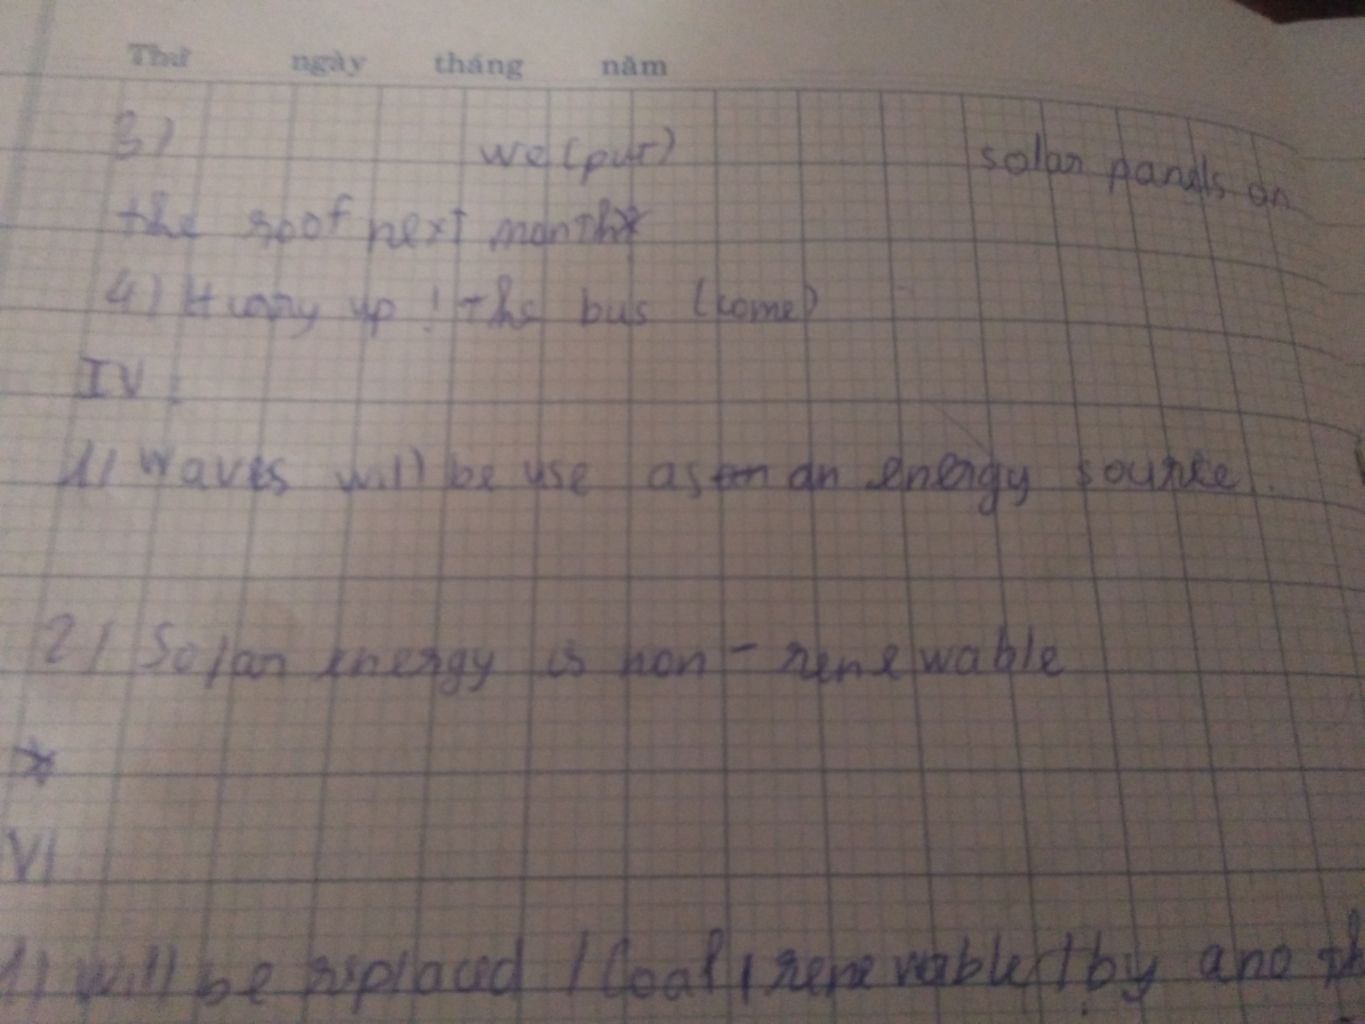 Thứ ngày tháng năm
3) we (put) solar panels on
the roof next month
4) Hurry up ! the bus (come)
IV :
1) Waves will be use as an energy source.
2) Solar energy is non - renewable
VI
1) will be replaced / Coal / renewable / by ano th